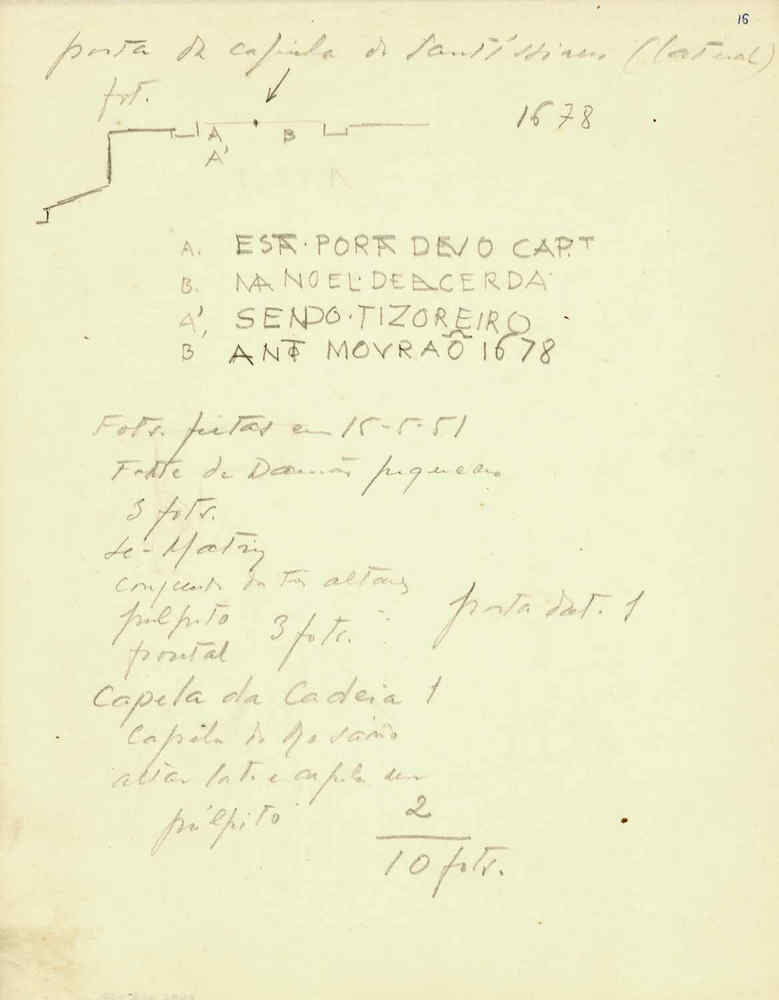 16
porta da capela do Santíssimo (lateral)
fot.
1678
A B
A'
A. ESTA · PORTA DEV O CAP.T
B. MANOEL · DE LACERDA
A', SENDO · TIZOREIRO
B ANTO MOVRAÕ 1678
Fots. feitas em 15-5-51
Forte de Damão pequeno
3 fots.
Sé-Matriz
conjunto dos três altares
púlpito 3 fots. porta dat. 1
frontal
Capela da Cadeia 1
Capela do Rosário
altar lat. e capela
púlpito 2
10 fots.